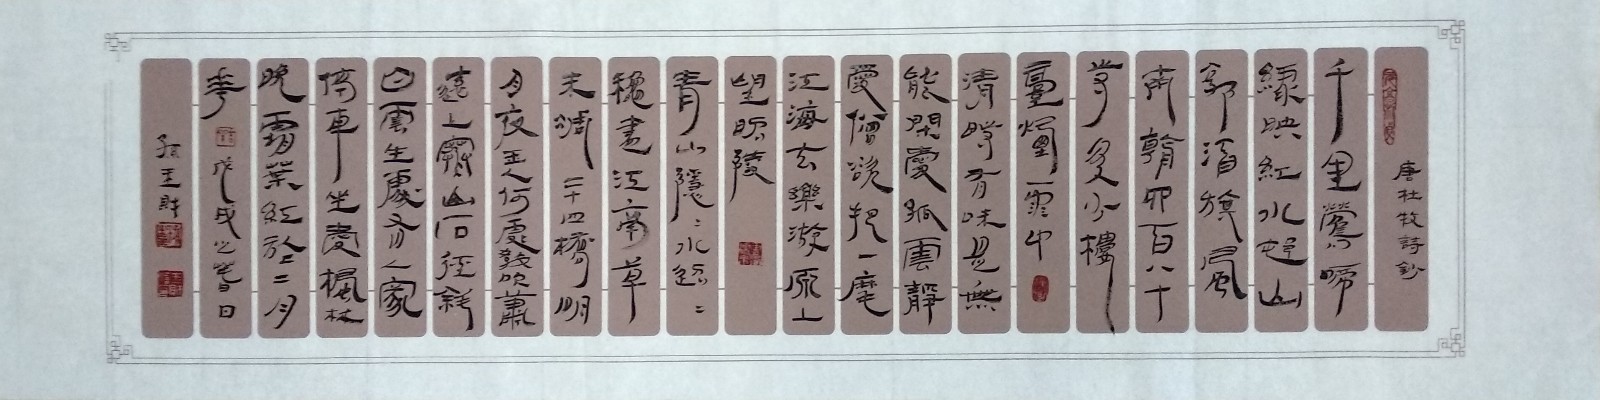 唐杜牧詩鈔
千里鶯啼
綠映紅水邨山
郭酒旗風
南朝四百八十
寺多少樓
臺煙雨中
清時有味是無
能閑愛孤雲靜
愛僧欲把一麾
江海去樂游原上
望昭陵
青山隱〻水迢〻
穐盡江南草
未凋二十四橋明
月夜玉人何處教吹簫
遠上寒山石徑斜
白雲生處有人家
停車坐愛楓林
晚霜葉紅於二月
花
戊戌之春日
孫玉財